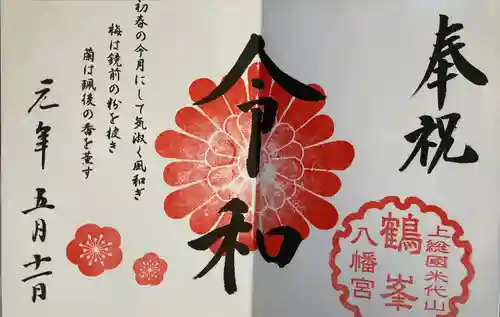 奉祝
上総國米代山
鶴峯
八幡宮
令和
初春の令月にして気淑く風和ぎ
梅は鏡前の粉を披き
蘭は珮後の香を薫す
元年 五月十一日